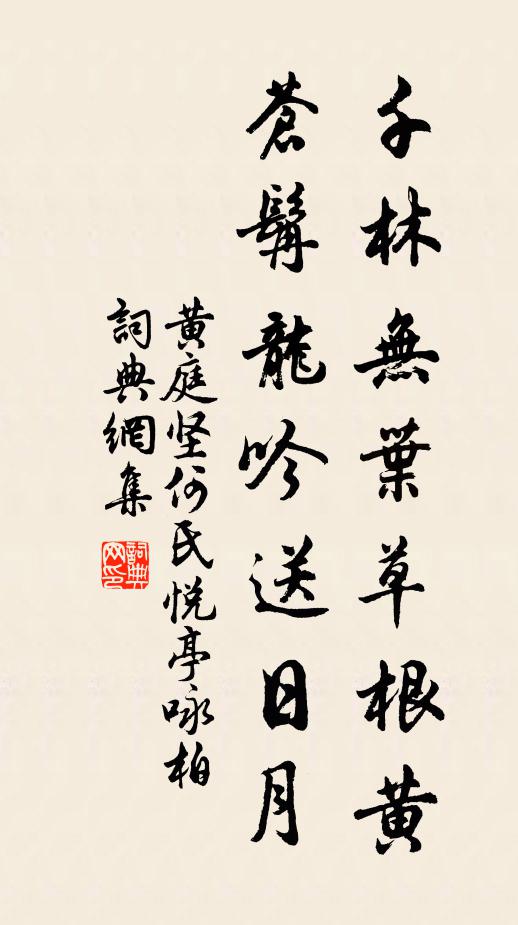 千林無葉草根黃
蒼髯龍吟送日月
黃庭坚何氏悦亭咏柏
詞典網集
詞典網印